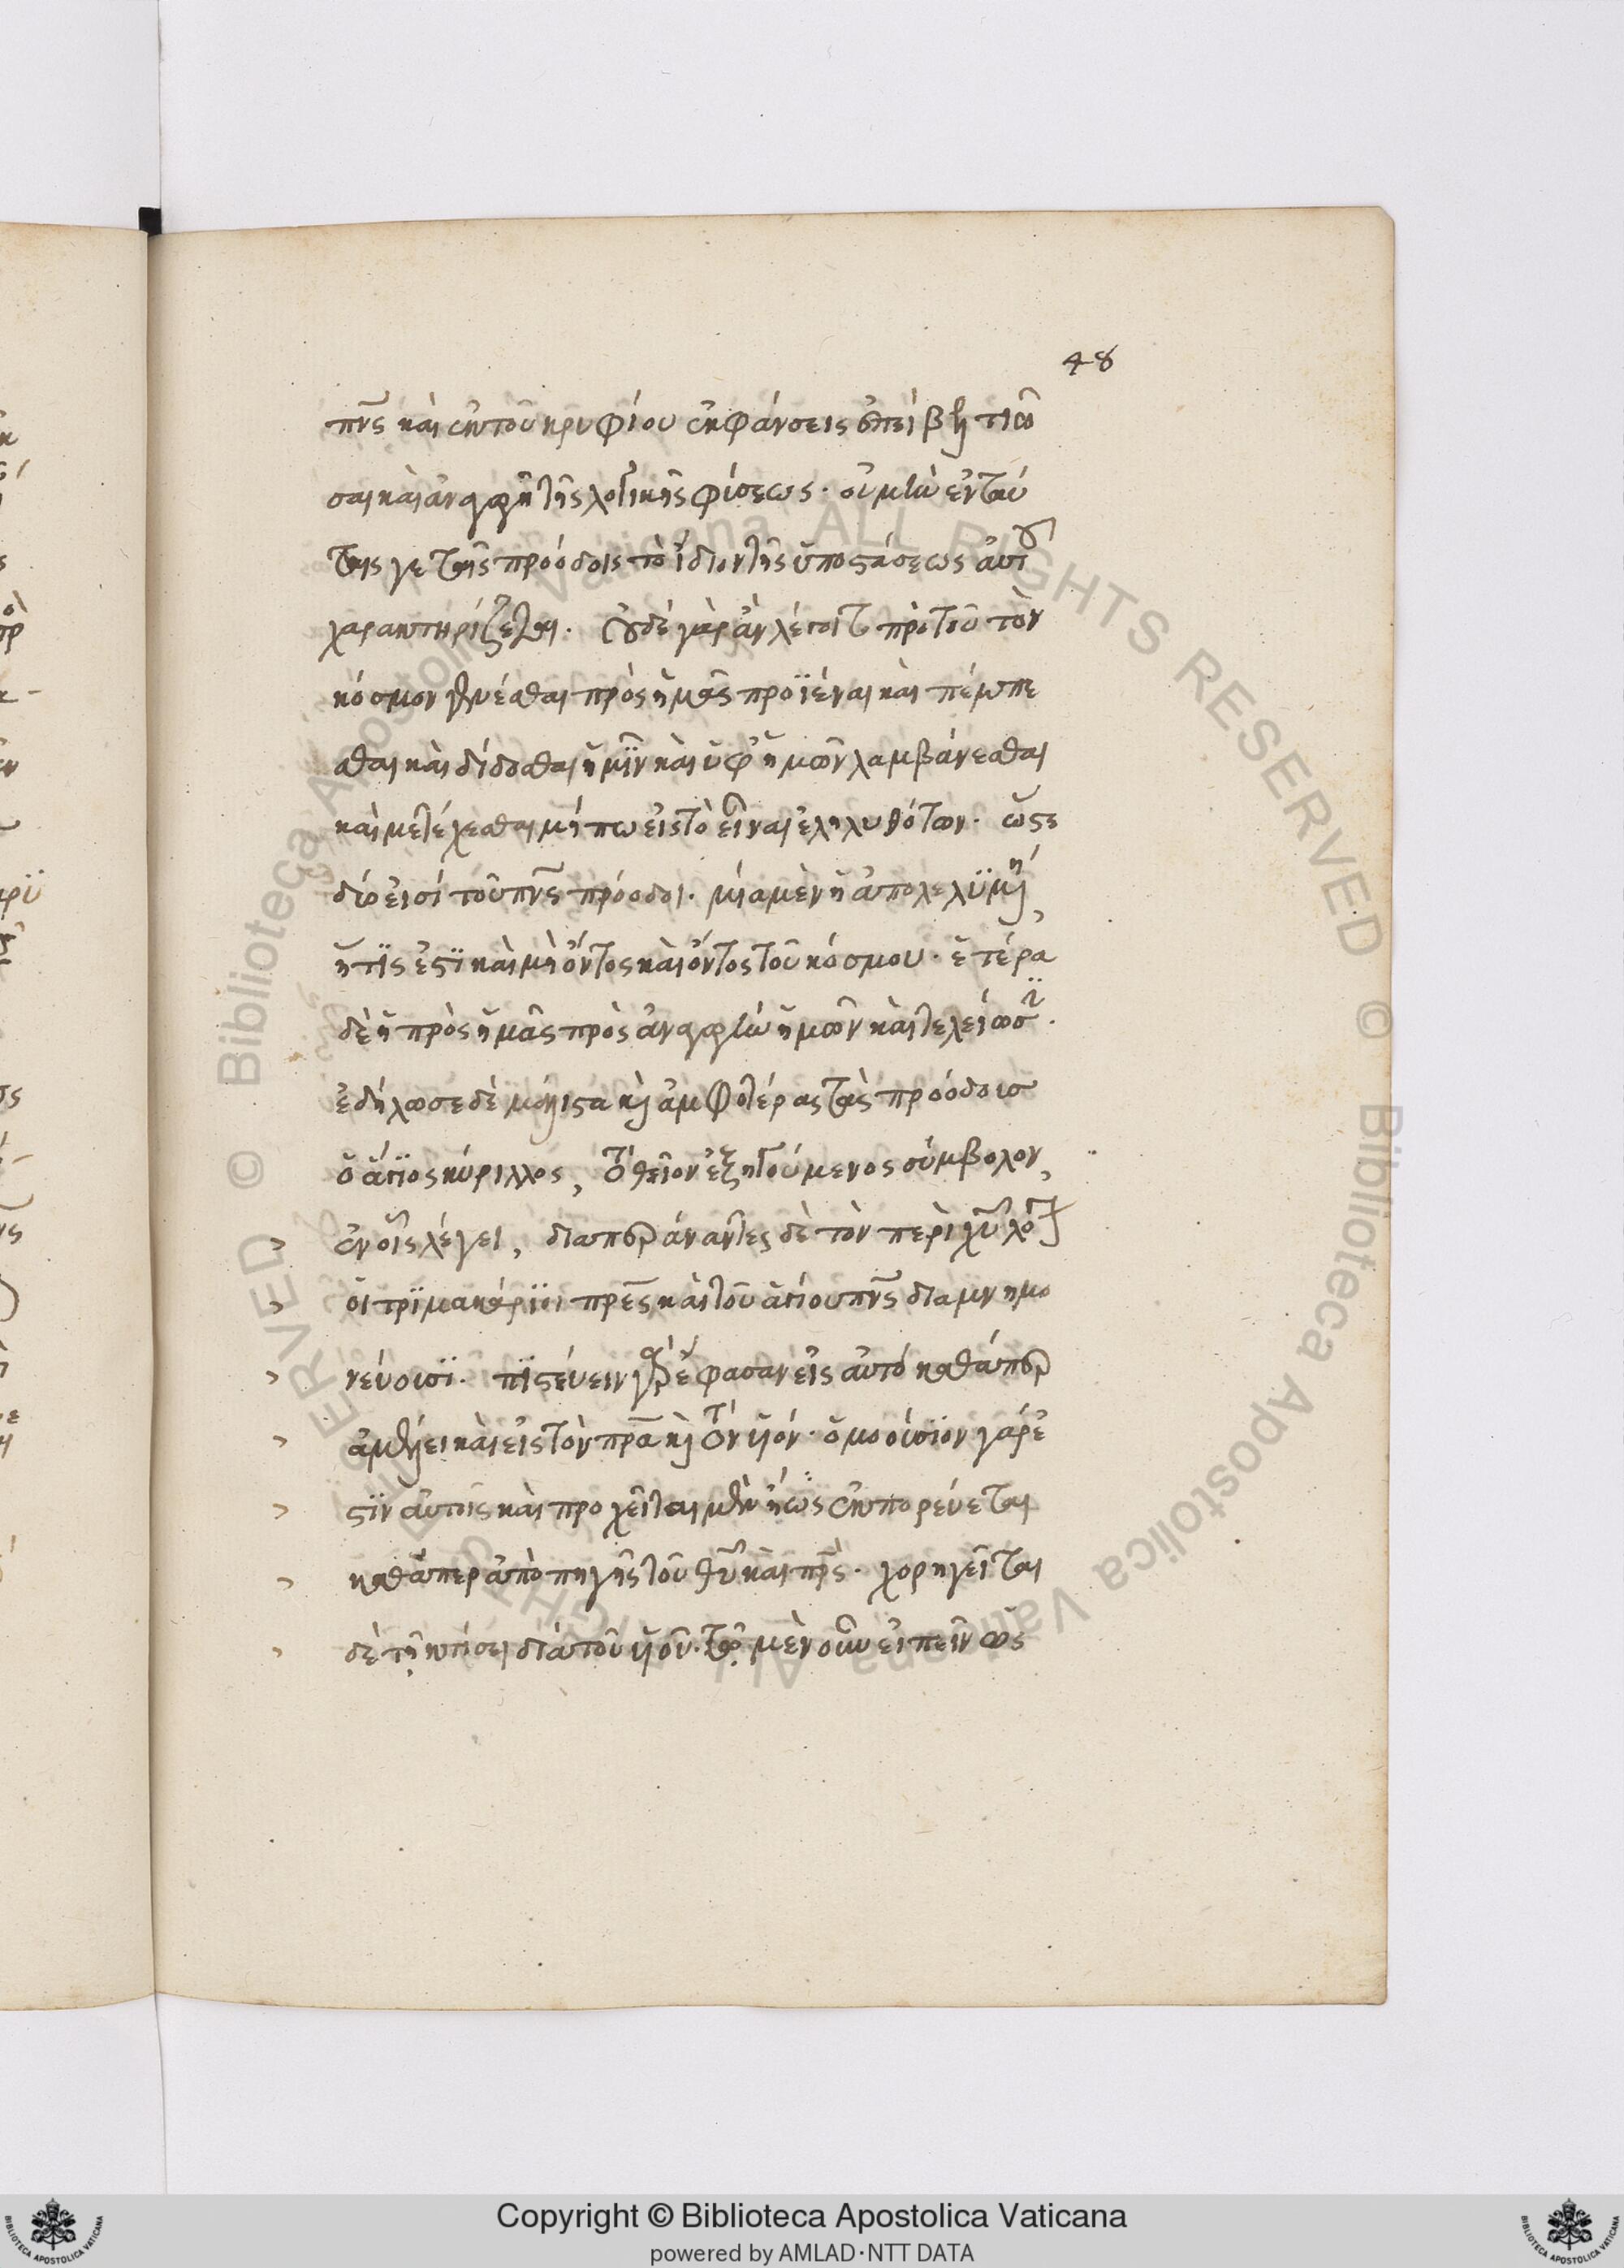 48
πνς καὶ ἐκ τοῦ κρυφίου ἐκφάνσεις ἐπὶ βελτιώ
σει καὶ ἀναγωγῇ τῆς λογικῆς φύσεως· οὐ μὴν ἐν ταύ
ταις γε ταῖς προόδοις τὸ ἴδιον τῆς ὑποστάσεως αὐτοῦ
χαρακτηρίζεται. Οὐδὲ γὰρ ἂν λέγοιτο πρὸ τοῦ τὸν
κόσμον γενέσθαι πρὸς ἡμᾶς προϊέναι καὶ πέμπε
σθαι καὶ δίδοσθαι ἡμῖν καὶ ὑφ' ἡμῶν λαμβάνεσθαι
καὶ μετέχεσθαι μήπω εἰς τὸ εἶναι ἐληλυθότων· ὥστε
δύο εἰσὶ τοῦ πνς πρόοδοι· μία μὲν ἡ ἀπολελυμένη,
ἥτις ἐστὶ καὶ μὴ ὄντος καὶ ὄντος τοῦ κόσμου· ἑτέρα
δὲ ἡ πρὸς ἡμᾶς πρὸς ἀναγωγὴν ἡμῶν καὶ τελείωσιν.
ἐδήλωσε δὲ μάλιστα καὶ ἀμφοτέρας τὰς προόδους
ὁ ἅγιος κύριλλος, τὸ θεῖον ἐξηγούμενος σύμβολον,
ἐν οἷς λέγει, διαπεράναντες δὲ τὸν περὶ χυ λόγον
οἱ τρισμακάριοι πρες καὶ τοῦ ἁγίου πνς διαμνημο
νεύουσι. πιστεύειν γὰρ ἔφασαν εἰς αὐτὸ καθάπερ
ἀμέλει καὶ εἰς τὸν πρα καὶ τὸν υἱόν· ὁμοούσιον γάρ ἐ
στιν αὐτοῖς καὶ προχεῖται μὲν ἤγουν ἐκπορεύεται
καθάπερ ἀπὸ πηγῆς τοῦ θυ καὶ πρς· χορηγεῖται
δὲ τῇ κτίσει διὰ τοῦ υἱοῦ. τῷ μὲν οὖν εἰπεῖν ὡς
Copyright © Biblioteca Apostolica Vaticana
powered by AMLAD·NTT DATA